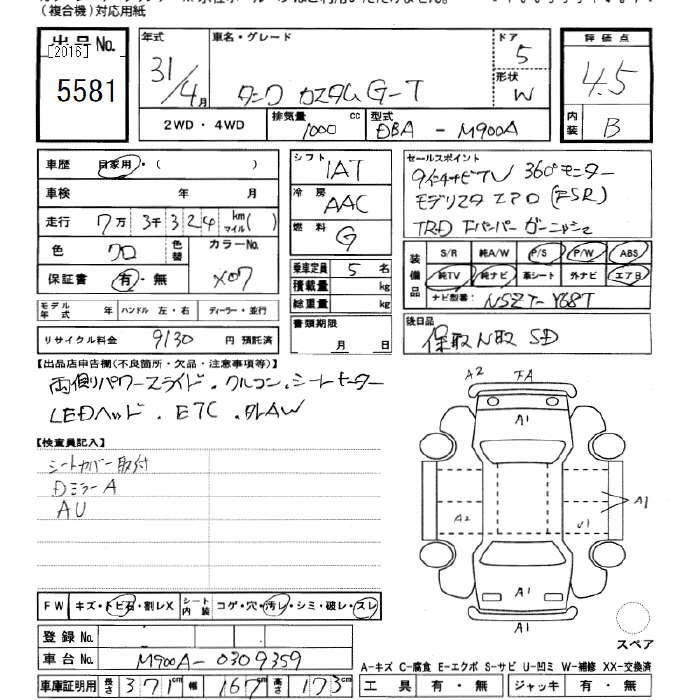 (複合機)対応用紙
出品No.
[2016]
5581
年式
31/4月
車名・グレード
タンク カスタム G-T
ドア
5
形状
W
評価点
4.5
内装
B
2WD・4WD
排気量
1000 cc
型式
DBA - M900A
車歴 自家用・( )
車検 年 月
走行 7万 3千 3 2 4 km マイル( )
色 クロ 色替 カラーNo.
保証書 有・無 X07
モデル年式 年 ハンドル 左・右 ディーラー・並行
リサイクル料金 9130 円 預託済
シフト IAT
冷房 AAC
燃料 G
乗車定員 5 名
積載量 kg
総重量 kg
書類期限
月 日
セールスポイント
9インチナビTV 360°モニター
モデリスタ エアロ(FSR)
TRD Fバンパーガーニッシュ
装備品
S/R 純A/W P/S P/W ABS
純TV 純ナビ 革シート 外ナビ エアB
ナビ型番: NSZT-Y68T
後日品
保取 N取 SD
【出品店申告欄(不良箇所・欠品・注意事項等)】
両側パワースライド.クルコン.シートヒーター
LEDヘッド.ETC.外AW
【検査員記入】
シートカバー取付
DミラーA
AU
A2 FA
A1
A2 U1 A1
A1
A1
スペア
FW キズ・トビ石・割レX シート内装 コゲ・穴・汚レ・シミ・破レ・スレ
登録No.
車台No. M900A-0309359
車庫証明用 長さ 371cm 幅 167cm 高さ 173cm
A-キズ C-腐食 E-エクボ S-サビ U-凹ミ W-補修 XX-交換済
工具 有・無 ジャッキ 有・無